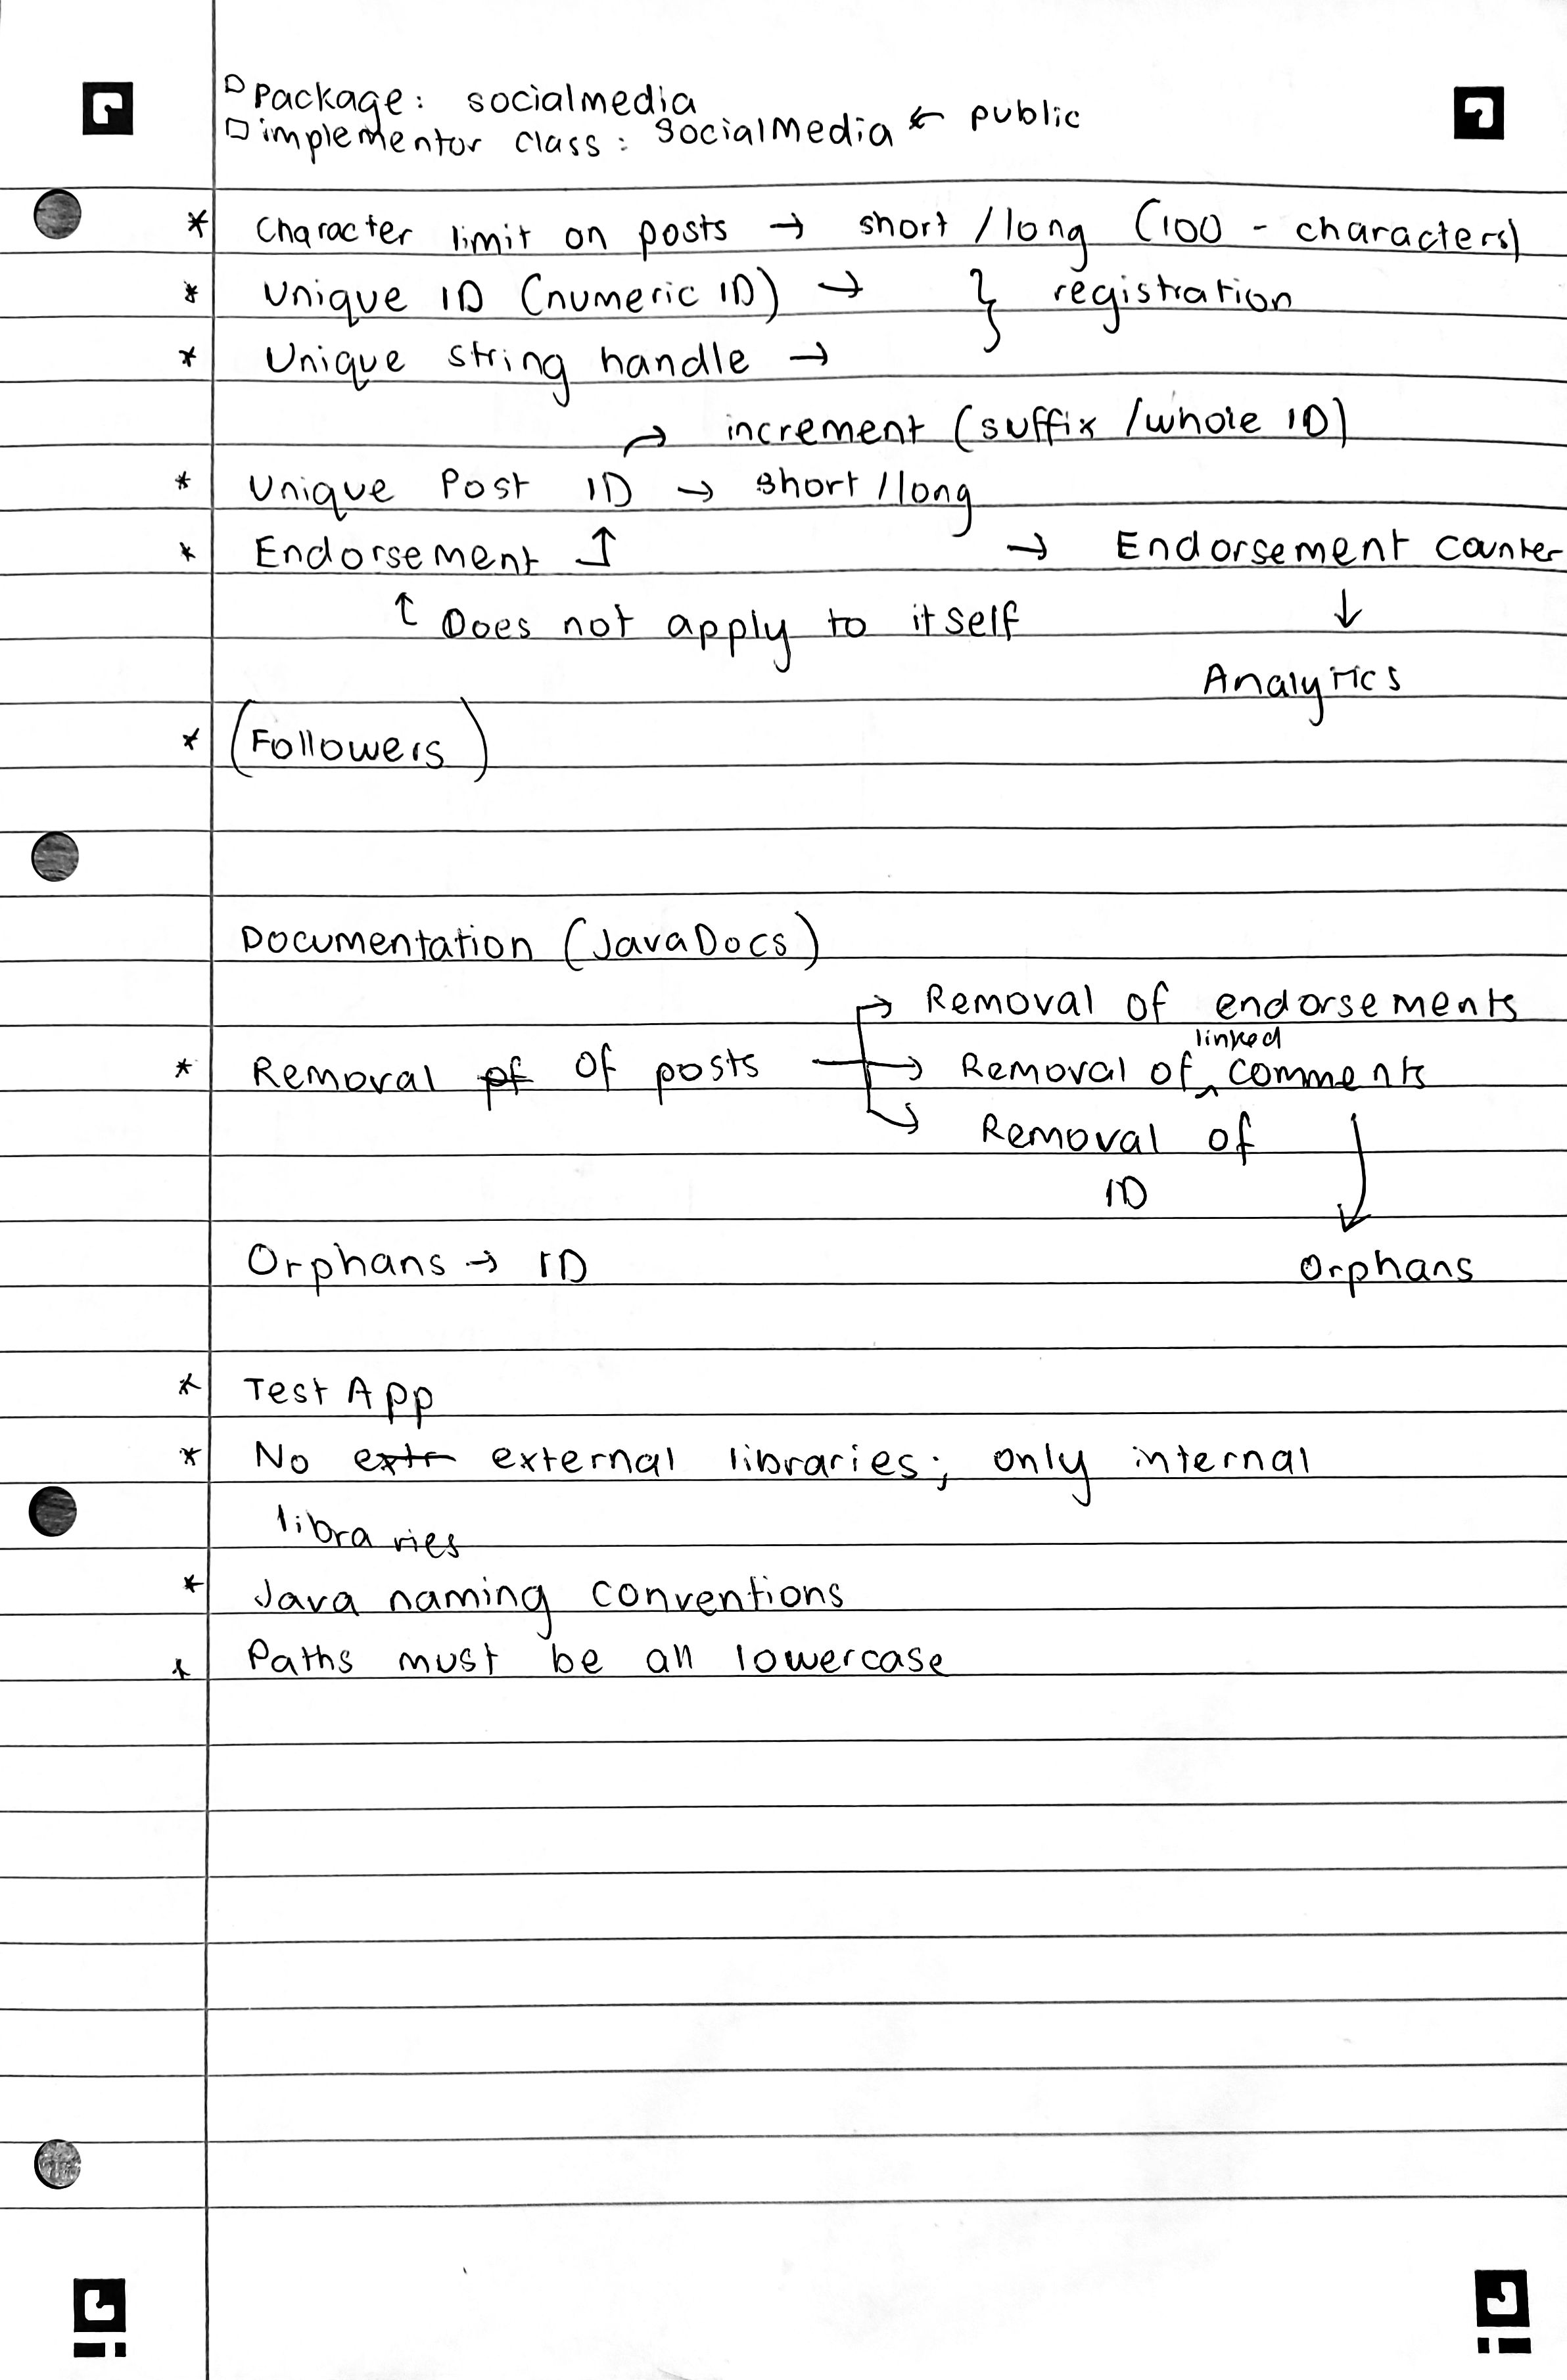 □ Package: socialmedia
□ implementor class: SocialMedia ← public
* Character limit on posts → short / long (100 - characters)
* Unique ID (numeric ID) → } registration
* Unique string handle →
→ increment (suffix / whole ID)
* Unique Post ID → short / long
* Endorsement ↑ → Endorsement counter
↑ Does not apply to itself ↓
Analytics
* (Followers)
Documentation (JavaDocs)
→ Removal of endorsements
linked
* Removal pf of posts → Removal of ^ comments
→ Removal of
ID
Orphans → ID Orphans
* Test App
* No extr external libraries; only internal
libraries
* Java naming conventions
* Paths must be all lowercase